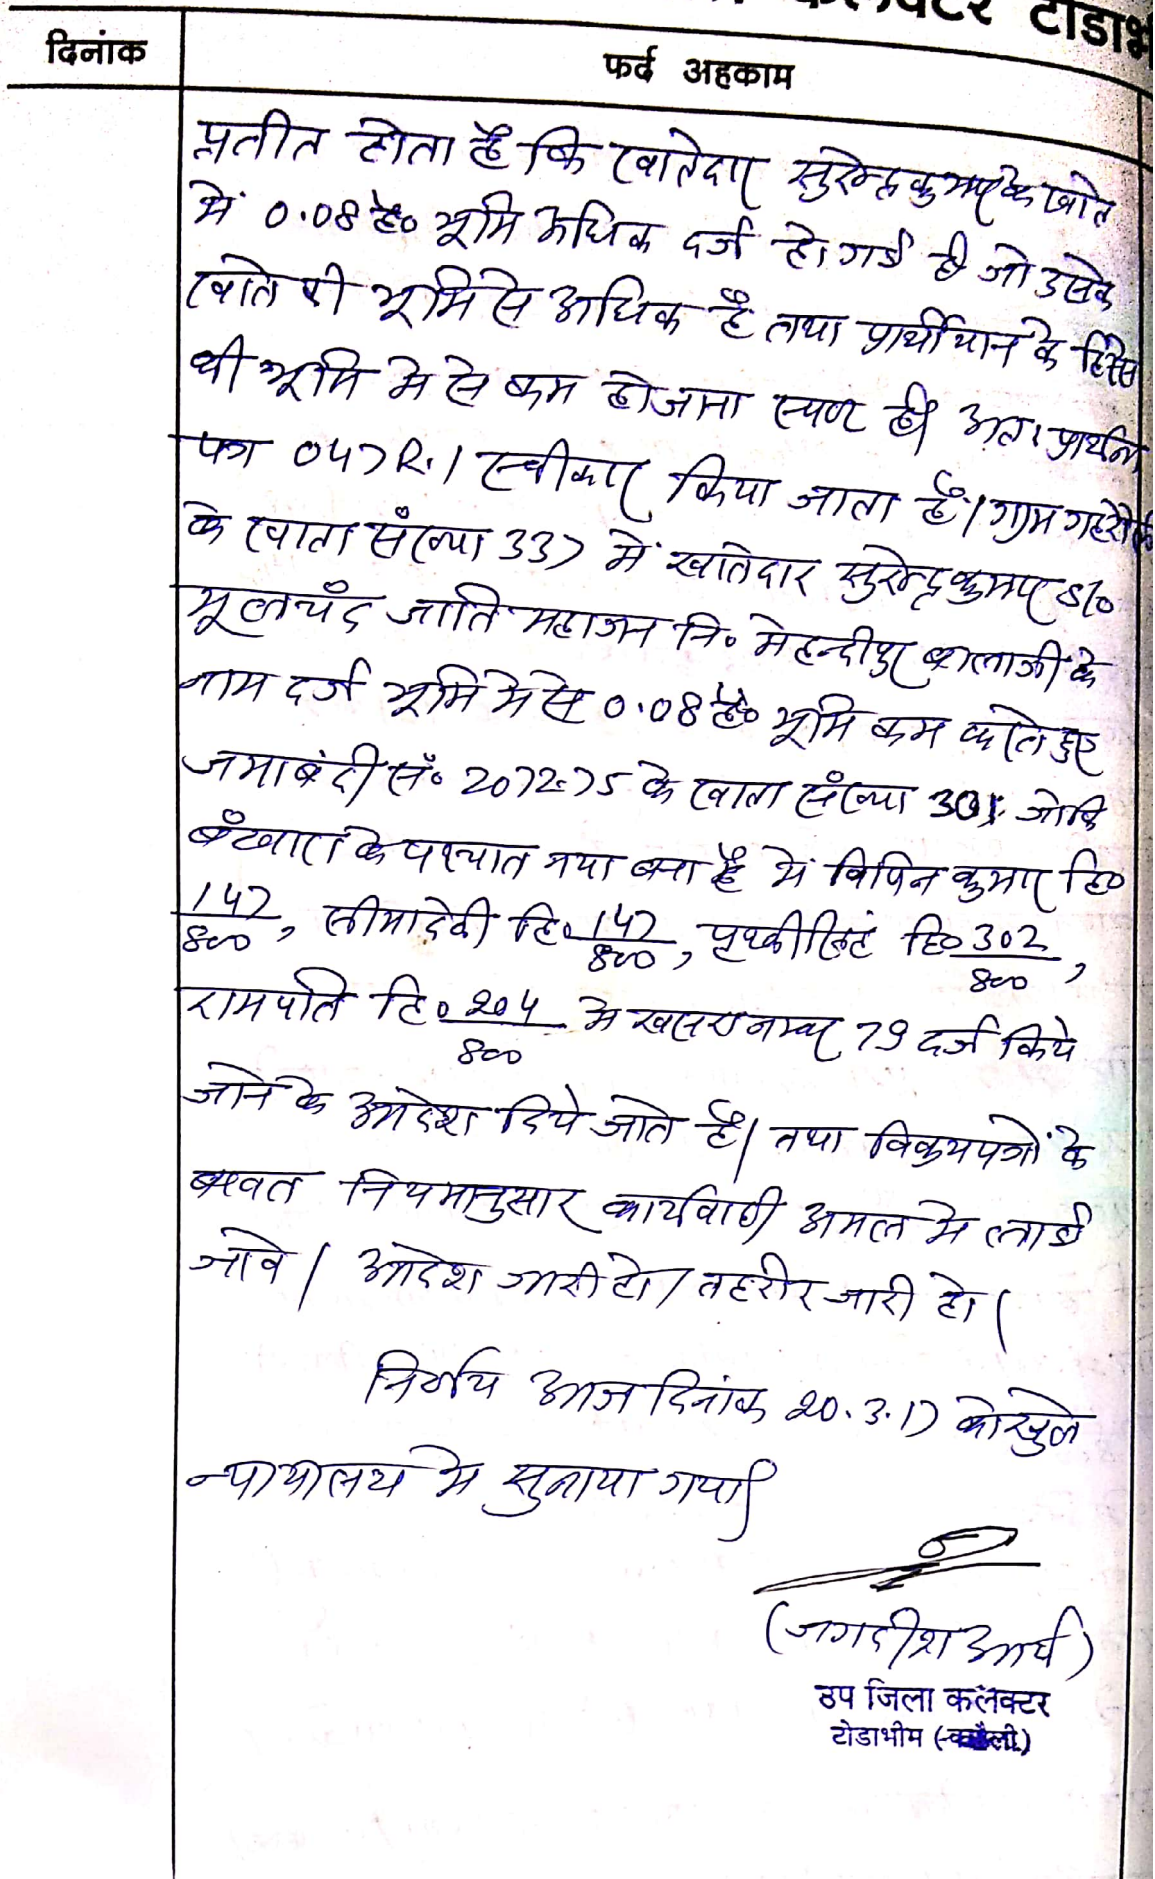 कलक्टर टोडाभी
दिनांक
फर्द अहकाम
प्रतीत होता है कि खातेदार सुरेन्द्र कुमार के खाते
में 0.08 है० भूमि अधिक दर्ज हो गई है जो उसके
खाते की भूमि से अधिक है तथा प्रार्थीयान के हिस्से
की भूमि मे से कम हो जाना स्पष्ट है। अतः प्रार्थना
पत्र स्वीकार किया जाता है। ग्राम
के खाता संख्या 337 में खातेदार सुरेन्द्र कुमार S/o
मूलचंद जाति महाजन नि० मेहन्दीपुर बालाजी के
नाम दर्ज भूमि मे से 0.08 है० भूमि कम करते हुए
जमाबंदी सं० 2072-75 के खाता संख्या 301 जोकि
के पश्चात नया बना है में विपिन कुमार हि०
147/800, सीमादेवी हि० 147/800, पृथ्वीसिंह हि० 302/800,
रामपति हि० 204/800 मे खसरा नम्बर 79 दर्ज किये
जाने के आदेश दिये जाते है। तथा विक्रयपत्रों के
बाबत नियमानुसार कार्यवाही अमल मे लाई
जावे। आदेश जारी हो। तहरीर जारी हो।
निर्णय आज दिनांक 20.3.17 को खुले
न्यायालय मे सुनाया गया।
(जगदीश आर्य)
उप जिला कलक्टर
टोडाभीम (करौली)